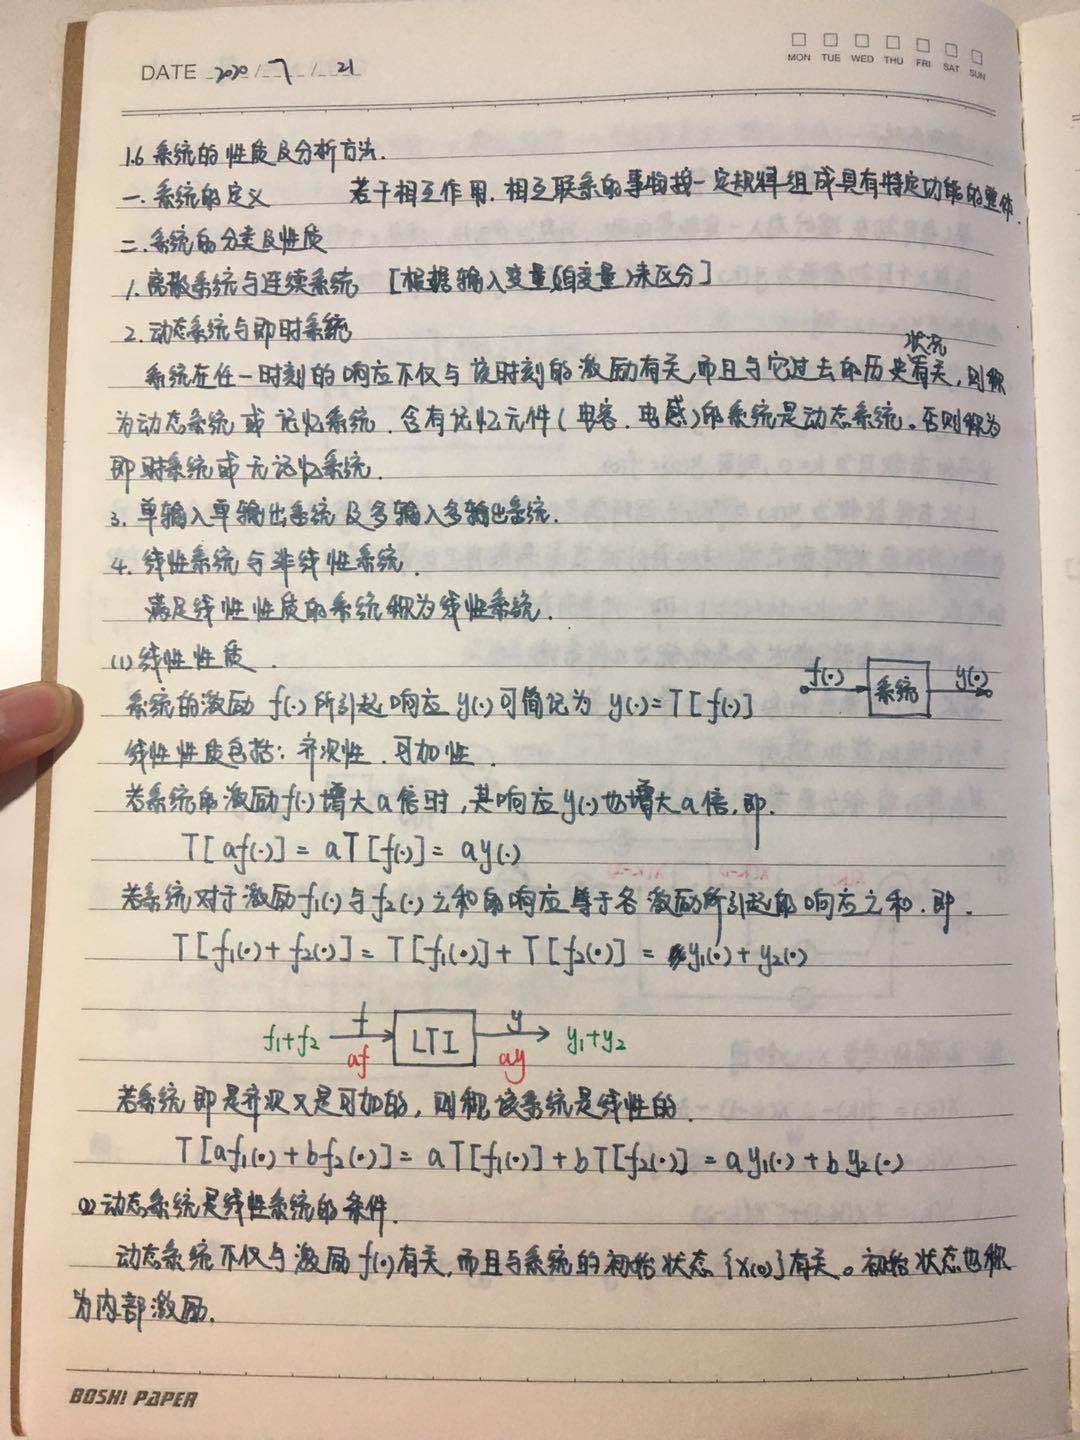 MON TUE WED THU FRI SAT SUN
DATE 2020 / 7 / 21
1.6 系统的性质及分析方法.
一. 系统的定义 若干相互作用. 相互联系的事物按一定规律组成具有特定功能的整体.
二. 系统的分类及性质
1. 离散系统与连续系统 [根据输入变量(自变量)来区分]
2. 动态系统与即时系统
状况
系统在任一时刻的响应不仅与该时刻的激励有关,而且与它过去的历史有关, 则称
为动态系统或记忆系统. 含有记忆元件(电容. 电感)的系统是动态系统。否则称为
即时系统或无记忆系统.
3. 单输入单输出系统及多输入多输出系统.
4. 线性系统与非线性系统.
满足线性性质的系统称为线性系统.
(1) 线性性质.
f(·) 系统 y(·)
系统的激励 f(·) 所引起响应 y(·) 可简记为 y(·)=T[f(·)]
线性性质包括: 齐次性. 可加性.
若系统的激励f(·)增大a倍时, 其响应y(·)也增大a倍, 即.
T[af(·)] = aT[f(·)] = ay(·)
若系统对于激励f₁(·)与f₂(·)之和的响应等于各激励所引起的响应之和. 即.
T[f₁(·)+f₂(·)] = T[f₁(·)] + T[f₂(·)] = y₁(·)+y₂(·)
f y
f₁+f₂ LTI y₁+y₂
af ay
若系统即是齐次又是可加的, 则称该系统是线性的.
T[af₁(·)+bf₂(·)] = aT[f₁(·)]+bT[f₂(·)] = ay₁(·)+by₂(·)
(2) 动态系统是线性系统的条件.
动态系统不仅与激励f(·)有关, 而且与系统的初始状态{x(0)}有关。初始状态也称
为内部激励.
BOSHI PAPER